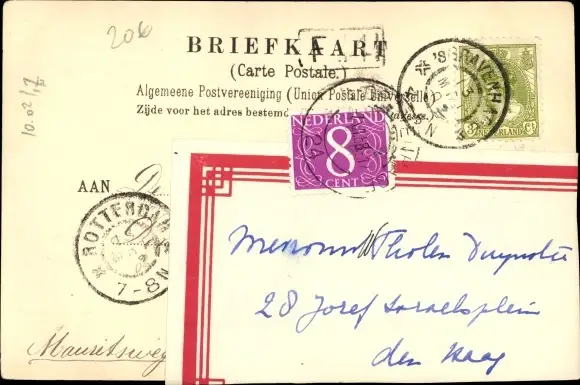 206
BRIEFKAART
(Carte Postale.)
Algemeene Postvereeniging (Union Postale Universelle)
Zijde voor het adres bestemd
10.02/17
'SGRAVENHA
3
NEDERLAND
NEDERLAND
8
CENT
AAN
ROTTERDAM
7-8N
Mauritsweg
Mevrouw Tholen
28 Jozef Israelsplein
den Haag